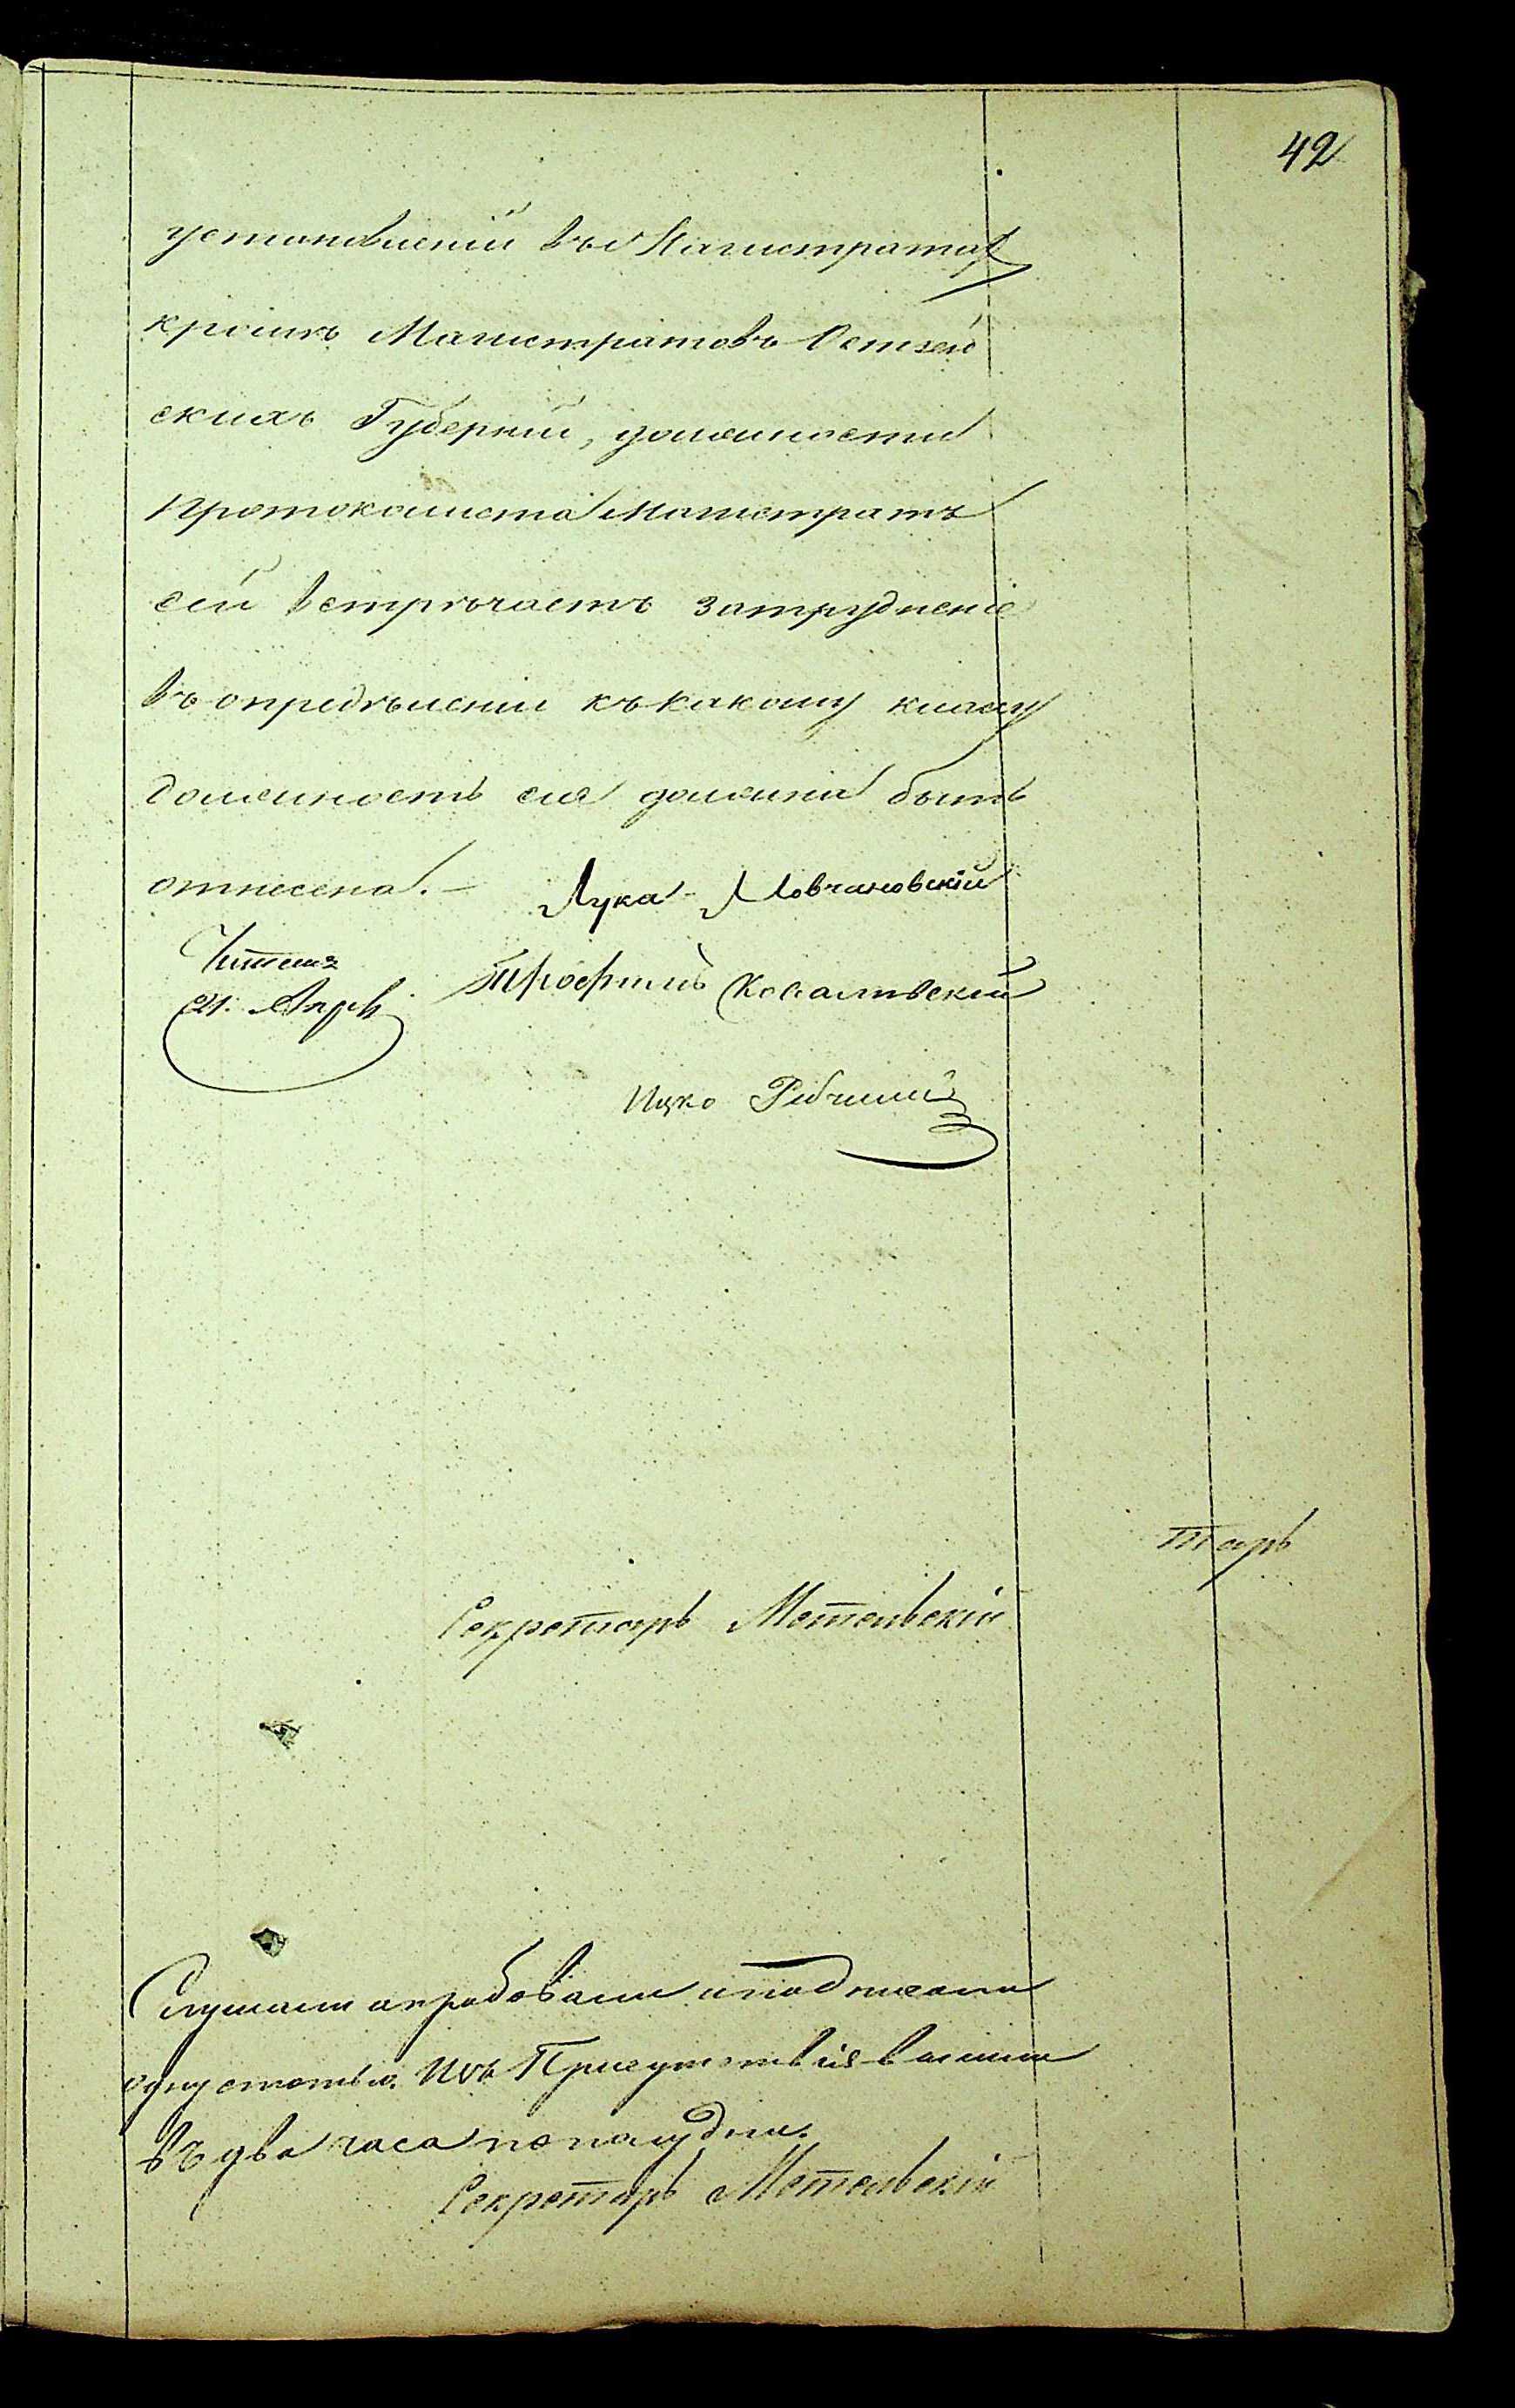 42
установленiй въ Магистратахъ
кромѣ Магистратовъ Остзей
скихъ Губернiй, должности
Протоколиста Магистратъ
сей встрѣчаетъ затрудненiе
въ опредѣленiи къ какому класу
должность сiя должна быть
отнесена. –
Лука Ловчановскiй
Читалъ
21. Апрѣ
Трофимъ Ковальскiй
Ицко
тарь
Секретарь Метельскiй
Слушали апробовали и подписали
одну статью. Изъ Присутствiя вышли
въ два часа пополудни.
Секретарь Метельскiй